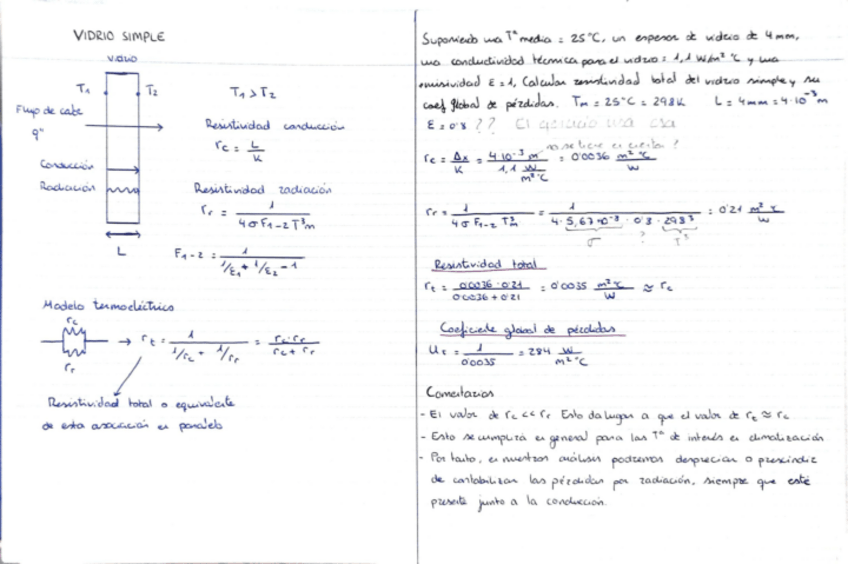 VIDRIO SIMPLE
vidrio
T₁ T₂ T₁ > T₂
Flujo de calor
q"
Conducción
Radiación
L
Resistividad conducción
r_c = L / K
Resistividad radiación
r_r = 1 / 4σF₁₋₂T³m
F₁₋₂ = 1 / 1/ε₁ + 1/ε₂ - 1
Modelo termoeléctrico
r_c
r_r
→ r_t = 1 / 1/r_c + 1/r_r = r_c·r_r / r_c + r_r
Resistividad total o equivalente
de esta asociación en paralelo
Suponiendo una Tª media = 25°C, un espesor de vidrio de 4mm,
una conductividad técnica para el vidrio = 1,1 W/m² °C y una
emisividad ε = 1, Calcular resistividad total del vidrio simple y su
coef global de pérdidas. Tm = 25°C = 298K L = 4mm = 4·10⁻³ m
ε = 0'8 ?? El ejercicio usa esa
no se tiene en cuenta?
r_c = Δx / K = 4·10⁻³ m / 1,1 W/m²°C = 0'0036 m² °C / W
r_r = 1 / 4σF₁₋₂ T³m = 1 / 4·5,67·10⁻⁸·0'8·298³ = 0'21 m² °C / W
σ ? T³
Resistividad total
r_t = 0'0036·0'21 / 0'0036 + 0'21 = 0'0035 m² °C / W ≈ r_c
Coeficiente global de pérdidas
U_t = 1 / 0'0035 = 284 W / m²°C
Comentarios
- El valor de r_c << r_r Esto da lugar a que el valor de r_t ≈ r_c
- Esto se cumplirá en general para las Tª de interés en climatización
- Por tanto, en nuestros análisis podremos despreciar o prescindir
de contabilizar las pérdidas por radiación, siempre que esté
presente junto a la conducción.